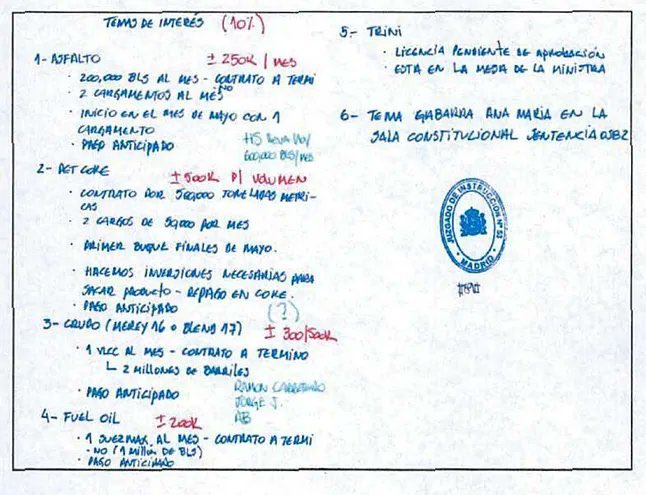 TEMAS DE INTERÉS (10%)
1- ASFALTO ± 250K / MES
· 200,000 BLS AL MES - CONTRATO A TERMI
NO
· 2 CARGAMENTOS AL MES
· INICIO EN EL MES DE MAYO CON 1
CARGAMENTO
· PAGO ANTICIPADO
600,000 BLS/MES
2- PET COKE ± 500K P/ VOLUMEN
· CONTRATO POR 500,000 TONELADAS METRI-
CAS
· 2 CARGOS DE 50,000 POR MES
· PRIMER BUQUE FINALES DE MAYO.
· HACEMOS INVERSIONES NECESARIAS PARA
SACAR PRODUCTO - REPAGO EN COKE.
· PAGO ANTICIPADO (?)
3- CRUDO (MEREY 16 O BLEND 17) ± 300/500K
· 1 VLCC AL MES - CONTRATO A TERMINO
2 MILLONES DE BARRILES
· PAGO ANTICIPADO
RAMON CARRETERO
JORGE J.
AB
4- FUEL OIL ± 200K
· 1 SUEZMAX AL MES - CONTRATO A TERMI
- NO (1 MILLON DE BLS)
· PAGO ANTICIPADO
5- TRINI
· LICENCIA PENDIENTE DE APROBACIÓN
· ESTA EN LA MESA DE LA MINISTRA
6- TEMA GABARRA ANA MARIA EN LA
SALA CONSTITUCIONAL SENTENCIA 0382
JUZGADO DE INSTRUCCIÓN Nº 53
· MADRID ·